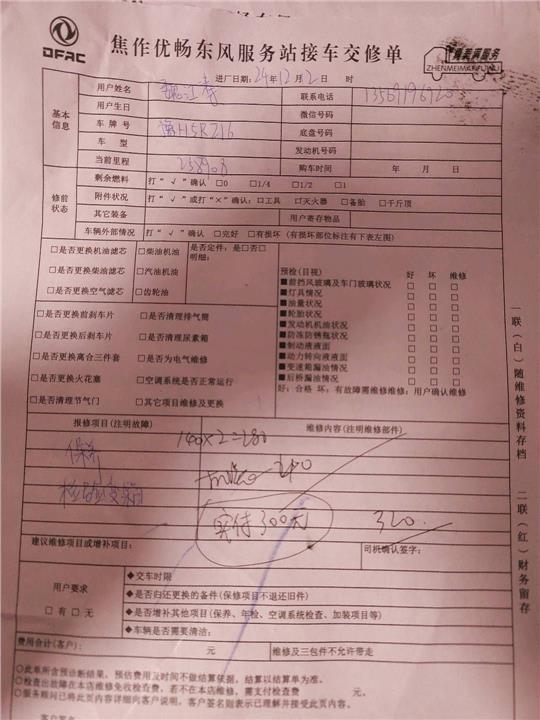 DFAC
焦作优畅东风服务站接车交修单
臻美真情服务
ZHENMEIMANFUWU
进厂日期：24年12月2日 时
基本信息
用户姓名 联系电话
用户生日 微信号码
车牌号 豫H5R216 底盘号码
车型 发动机号码
当前里程 258908 购车时间 年 月 日
修前状态
剩余燃料 打“√”确认 □0 □1/4 □1/2 □1
附件状况 打“√”或打“×”确认：□工具 □灭火器 □备胎 □千斤顶
其它装备 用户寄存物品
车辆外部情况 打“√”确认 □完好 □有损坏（有损坏部位标注有下表左图）
□是否更换机油滤芯 □柴油机油 是否定件：是□否□
明细：
□是否更换柴油滤芯 □汽油机油
□是否更换空气滤芯 □齿轮油
预检(目视) 好 坏 维修
■前挡风玻璃及车门玻璃状况 □ □ □
■灯具情况 □ □ □
■油量状况 □ □ □
■轮胎状况 □ □ □
■发动机机油状况 □ □ □
■防冻防锈瓶状况 □ □ □
■制动液液面 □ □ □
■动力转向液液面 □ □ □
■变速箱漏油情况 □ □ □
■后桥漏油情况 □ □ □
好：合格 坏：有故障需维修维修：用户确认维修
□是否更换前刹车片 □是否清理排气筒
□是否更换后刹车片 □是否清理尿素箱
□是否更换离合三件套 □是否为电气维修
□是否更换火花塞 □空调系统是否正常运行
□是否清理节气门 □其它项目维修及更换
报修项目(注明故障) 维修内容(注明维修部件)
保养 140×2=280
实付300元 320.
建议维修项目或增补项目： 司机确认签字：
用户要求
□有 □无
◆交车时限
◆是否归还更换的备件(保修项目不退还旧件)
◆是否增补其他项目(保养、年检、空调系统检查、加装项目等)
◆车辆是否需要清洁：
费用合计(客户)： 元 维修及三包件不允许带走
○此单所含预诊断结果，预估费用及时间不做结算依据，结算以结算单为准。
○检查出故障在本店维修免收检查费，若不在本店维修，需支付检查费 元。
○服务顾问已将此页内容详细向客户说明，客户签名则表示已理解并接受此页内容。
客户签名
一联（白）随维修资料存档
二联（红）财务留存